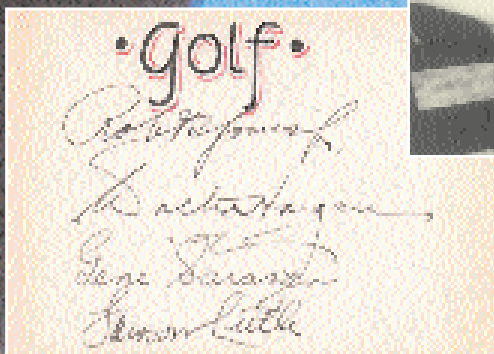 ·golf·
Robt T Jones Jr
Walter Hagen
Gene Sarazen
Lawson Little